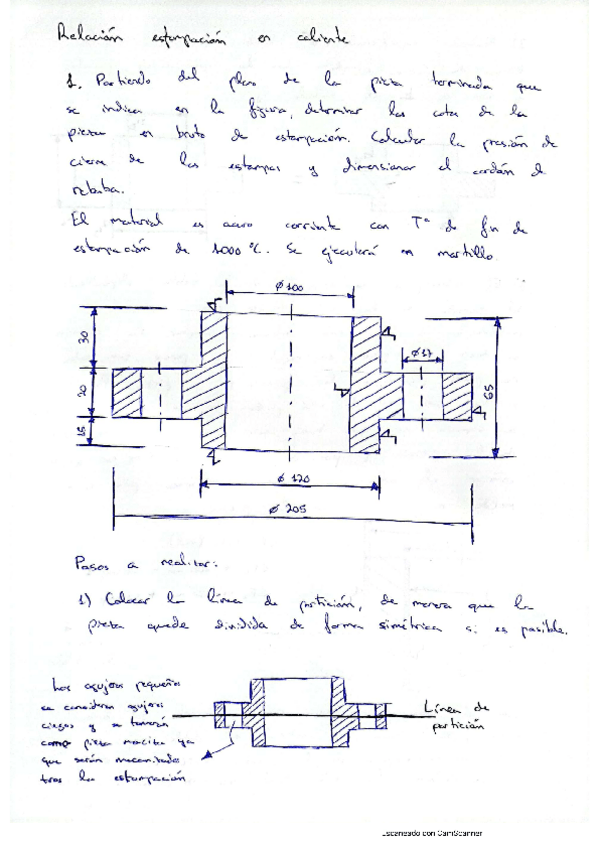 Relación estampación en caliente
1. Partiendo del plano de la pieza terminada que
se indica en la figura, determinar las cotas de la
pieza en bruto de estampación. Calcular la presión de
cierre de las estampas y dimensionar el cordón de
rebaba.
El material es acero corriente con Tª de fin de
estampación de 1000 ºC. Se ejecutará en martillo.
ø 100
30
ø17
20
65
15
ø 120
ø 205
Pasos a realizar:
1) Colocar la línea de partición, de manera que la
pieza quede dividida de forma simétrica si es posible.
Los agujeros pequeños
se consideran agujeros
ciegos y se tomarán
como pieza maciza ya
que serán mecanizados
tras la estampación
Línea de
partición
Escaneado con CamScanner